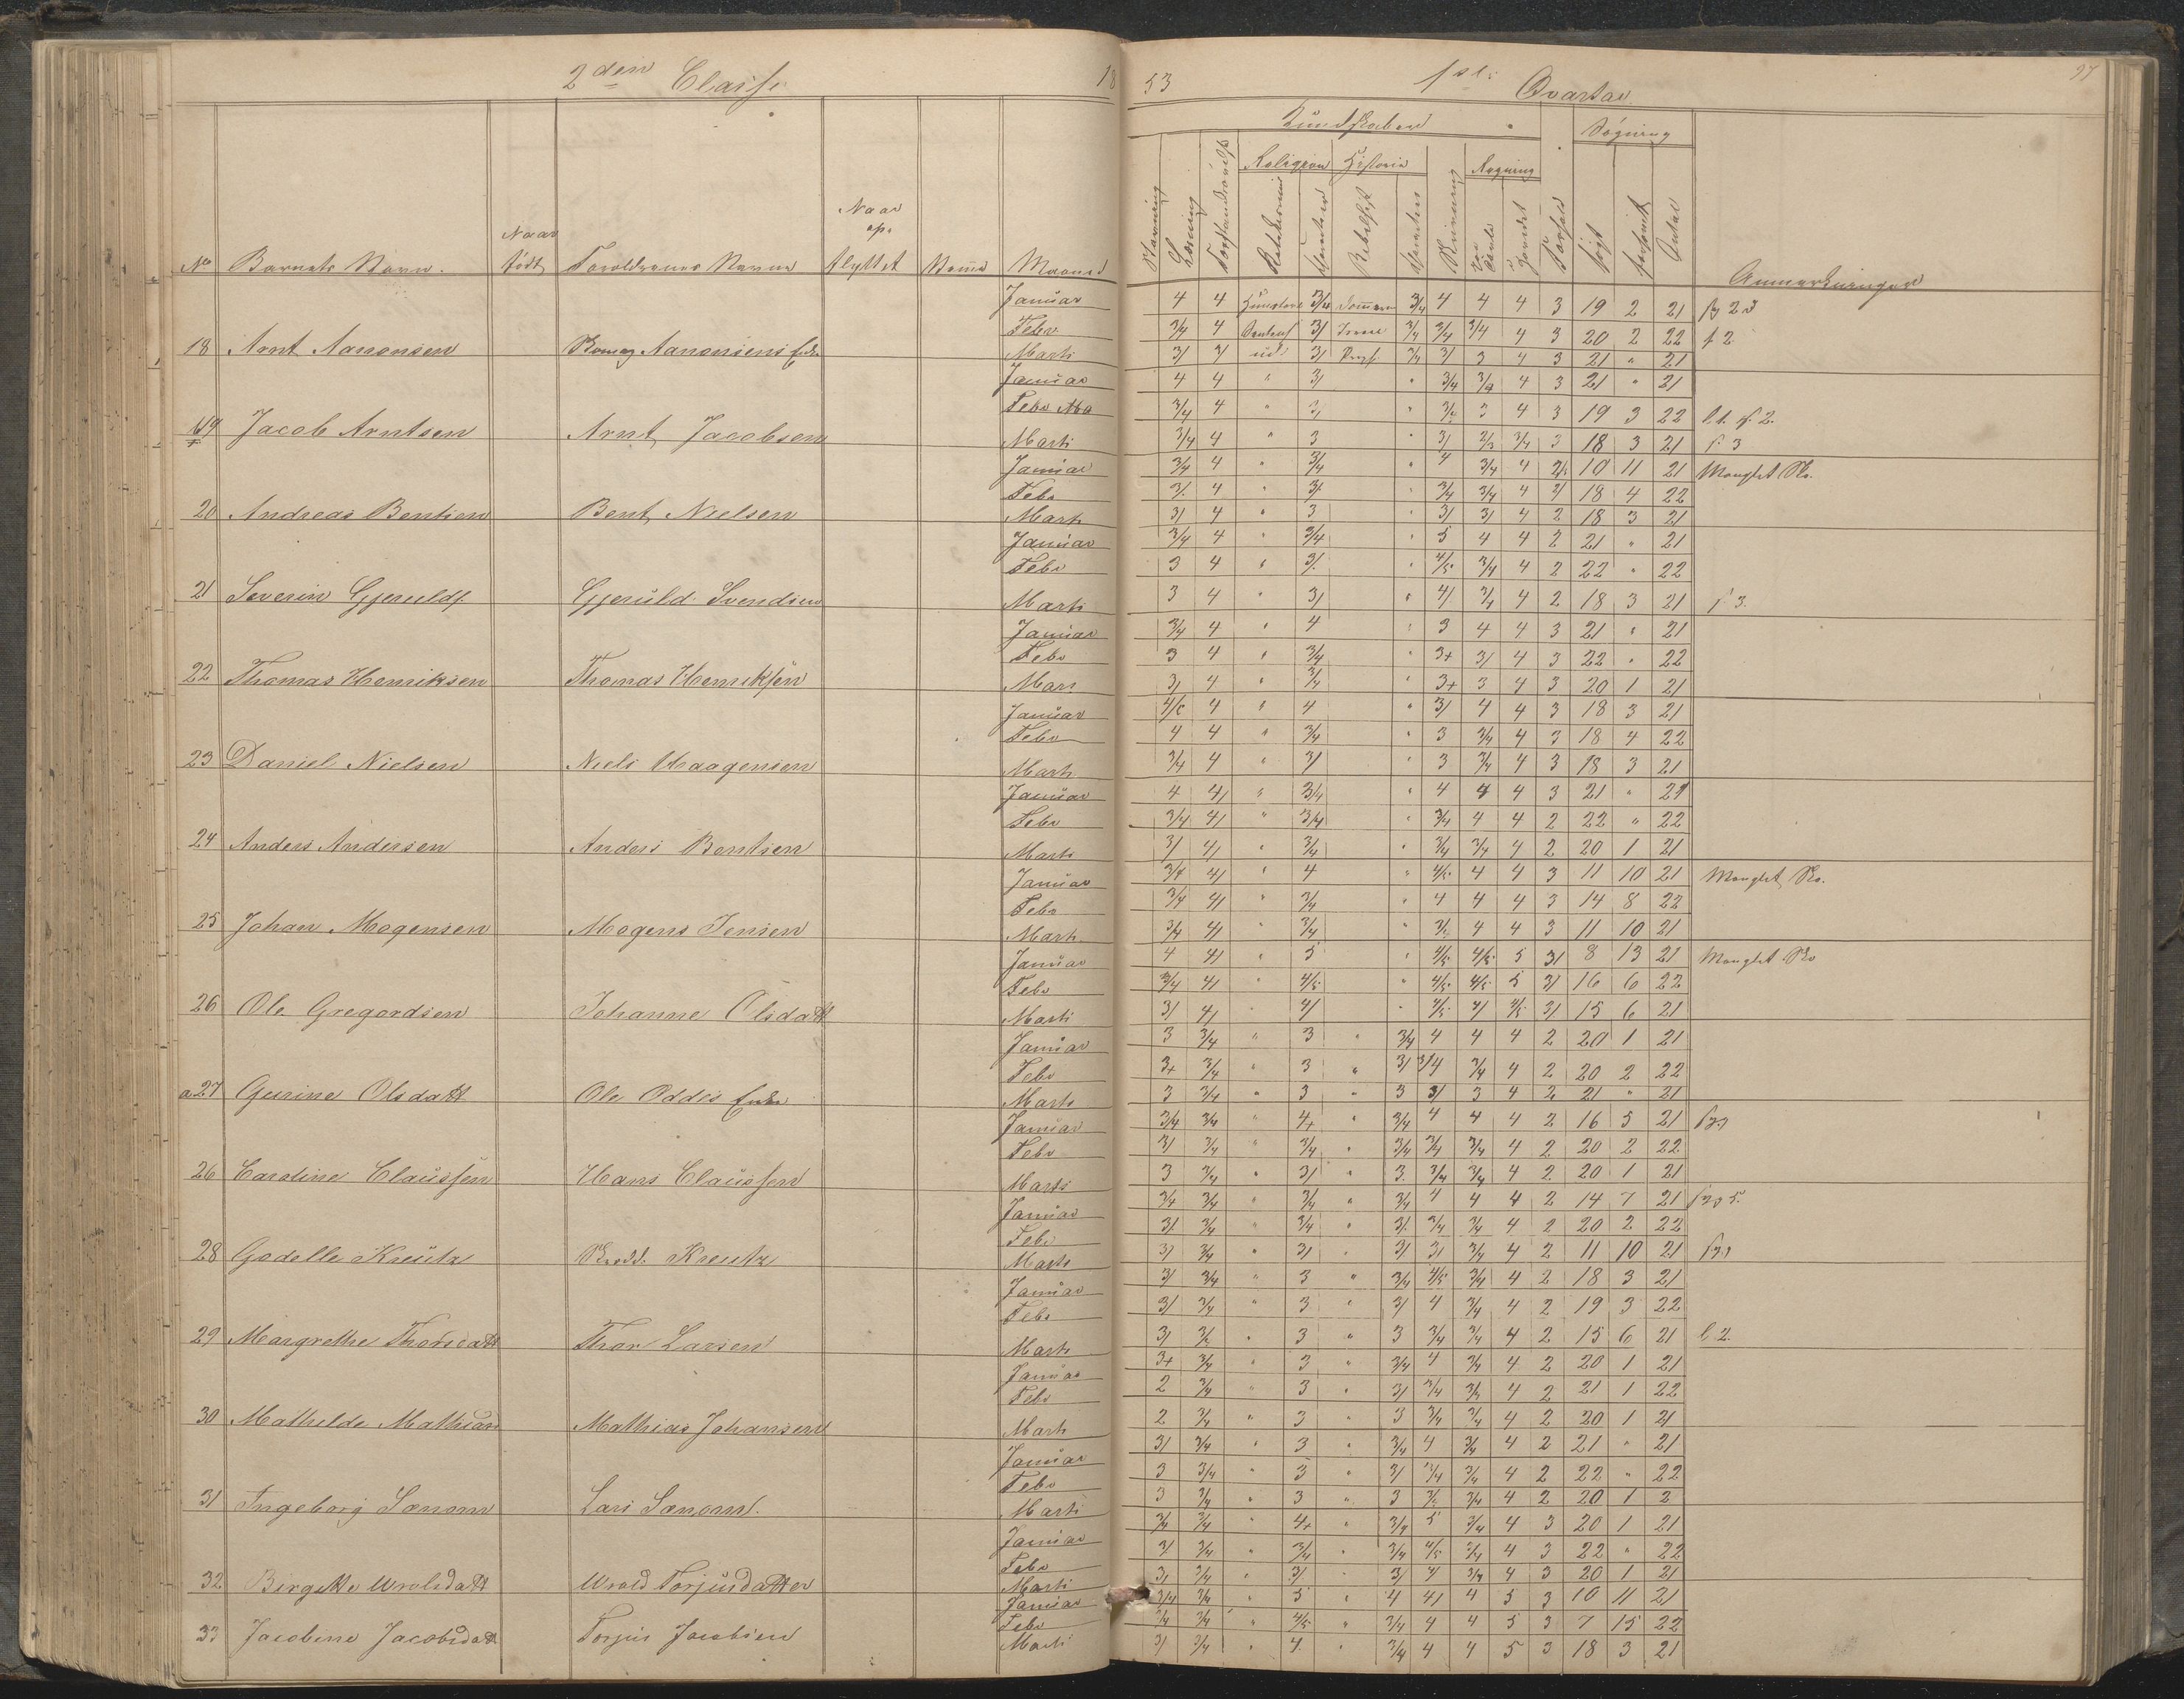 2den Classe 18 53 1ste Qvartal 97
Kundskaber Søgning
Religion Historie Regning
No Barnets Navn. Naar født Forældrenes Navne Naar op. flyttet Maaned Stavning Læsning Skrivning Forhold Søgt forsømt Antal Anmærkninger
Januar 4 4 3/4 3/4 4 4 4 3 19 2 21
Febr 3/4 4 3/ 3/4 3/4 3/4 4 3 20 2 22 f 2
18 Arnt Aanonsen Aanonsens Enke Marts 3/ 3/ 3/ 3/ 3 4 3 21 " 21
Januar 4 4 " 3/ " 3/4 3/4 4 3 21 " 21
Febr 3/4 4 " 3/ " 3 4 3 19 3 22
19 Jacob Arntsen Arnt Jacobsen Marts 3/4 4 " 3 " 3/ 3 18 3 21 f 3
Januar 3/4 4 " 3/4 " 4 3/4 4 10 11 21 Manglet Sko.
Febr 3/ 4 " 3/ " 3/4 3/4 4 18 4 22
20 Andreas Bentsen Bent Nielsen Marts 3/ 4 " 3 " 3/ 3/ 4 2 18 3 21
Januar 3/4 4 " 3/4 " 5 4 4 2 21 " 21
Febr 3 4 " 3/ " 4/5 3/4 4 2 22 " 22
21 Severin Gjerulds. Gjeruld Svendsen Marts 3 4 " 3/ " 4/ 3/4 4 2 18 3 21 f 3.
Januar 3/4 4 " 4 " 3 4 4 3 21 " 21
Febr 3 4 " 3/4 " 3+ 3/ 4 3 22 " 22
22 Thomas Henriksen Thomas Henriksen Mars 3/ 4 " 3/4 " 3+ 3 4 3 20 1 21
Januar 4 " 4 " 3/ 4 4 3 18 3 21
Febr 4 4 " 3/4 " 3 3/4 4 3 18 4 22
23 Daniel Nielsen Niels Haagensen Marts 3/4 4 " 3/ " 3 3/4 4 3 18 3 21
Januar 4 4/ " 3/4 " 4 4 4 3 21 " 21
Febr 3/4 4/ " 3/4 " 3/4 4 4 2 22 " 22
24 Anders Andersen Anders Bentsen Marts 3/ 4/ " 3/4 " 3/4 3/4 4 2 20 1 21
Januar 3/4 4/ " 4 " 4/5 4 4 3 11 10 21 Manglet Sko.
Febr 3/4 4/ " 3/4 " 4 4 4 3 14 8 22
25 Johan Mogensen Mogens Jensen Marts 3/4 4/ " 3/4 " 4 4 3 11 10 21
Januar 4 4/ " 5 " 4/5 4/5 5 3/ 8 13 21 Manglet Sko
Febr 3/4 4/ " 4/5 " 4/5 4/5 5 3/ 16 6 22
26 Ole Gregardsen Johanne Olsdatt Marts 3/ 4/ " 4/ " 4/5 4/ 4/5 3/ 15 6 21
Januar 3 3/4 " 3 " 3/4 4 4 4 2 20 1 21
Febr 3+ 3/4 " 3 " 3/ 3/4 3/4 4 2 20 2 22
a27 Gurine Olsdatt Ole Oddes Enke Marts 3 3/4 " 3 " 3 3/ 3 4 2 21 " 21
Januar 3/4 3/4 " 4+ " 3/4 4 4 4 2 16 5 21
Febr 3/ 3/4 " 3/4 " 3/4 3/4 3/4 4 2 20 2 22
26 Caroline Claussen Hans Claussen Marts 3 3/4 " 3/ " 3 3/4 3/4 4 2 20 1 21
Januar 3/4 3/4 " 3/4 " 3/4 4 4 4 2 14 7 21
Febr 3/ 3/4 " 3/4 " 3/ 3/4 3/4 4 2 20 2 22
28 Godelle Kreutz Kreutz Marts 3/ 3/4 " 3/ " 3/ 3/ 3/4 4 2 11 10 21
Januar 3/ 3/4 " 3 " 3/4 4/5 3/4 4 2 18 3 21
Febr 3/ 3/4 " 3 " 3/ 4 3/4 4 2 19 3 22
29 Margrethe Thorsdatt Thor Larsen Marts 3/ " 3 " 3 3/4 3/4 4 2 15 6 21 l. 2.
Januar 3+ 3/4 " 3 " 3/4 4 3/4 4 2 20 1 21
Febr 2 3/4 " 3 " 3/ 3/4 3/4 4 2 21 1 22
30 Mathelde Mathias Mathias Johansen Marts 2 3/4 " 3 " 3 3/4 3/4 4 2 20 1 21
Januar 3/ 3/4 " 3 " 3/4 4 3/4 4 2 21 " 21
Febr 3 3/4 " 3 " 3/ 3/4 3/4 4 2 22 " 22
31 Ingeborg Lars Marts 3 3/4 " 3 " 3 3/4 4 2 20 1 2
Januar 3/4 3/4 " 4+ " 3/4 5 3/4 4 3 20 1 21
Febr 3/ 3/4 " 3/4 " 3/4 4/5 3/4 4 3 22 " 22
32 Birgette Wrolsdatt Wrold Torjusdatter Marts 3/ 3/4 " 3/ " 3/ 4 3/4 4 3 20 1 21
Januar 3/4 3/4 " 5 " 4 4/ 4 5 3 10 11 21
Febr 3/4 3/4 " 4/5 " 3/4 4 4 5 3 7 15 22
33 Jacobine Jacobsdatt Torjus Jacobsen Marts 3/ 3/4 " 4 " 3/4 4 4 5 3 18 3 21